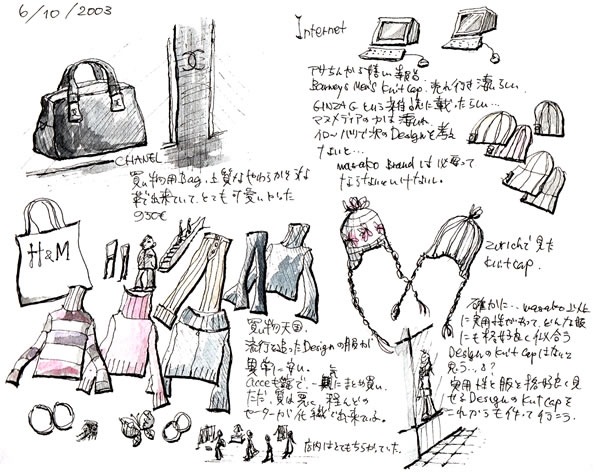 6/10/2003
Internet
アサちゃんから嬉しい報告
Barneys Men's Knit Cap. 売れ行き凄いらしい.
GINZA G という雑誌に載ったらしい…
マスメディアの力は凄いわ
イローハリで次のDesignを考え
ないと…
masako brand
ならないといけないし.
CHANEL
買い物用Bag. 上質なやわらかそうな
革で出来ていて、とても可愛いかった
950€
H&M
Zurichで見た
Knit Cap.
買い物天国.
流行を追ったDesignの服が
異常に安い.
acceも豊富で、一気にまとめ買い.
ただ、質は悪く、殆んどの
セーターが化繊で出来てるよ.
店内はとてもちらかっていた.
確かに… masako以上
に実用性があって、どんな服
にも格好良く似合う
DesignのKnit Capはないと
思う…よ?
実用性と服を格好良く見
せるDesignのKnit Capを
これからも作って行こう.